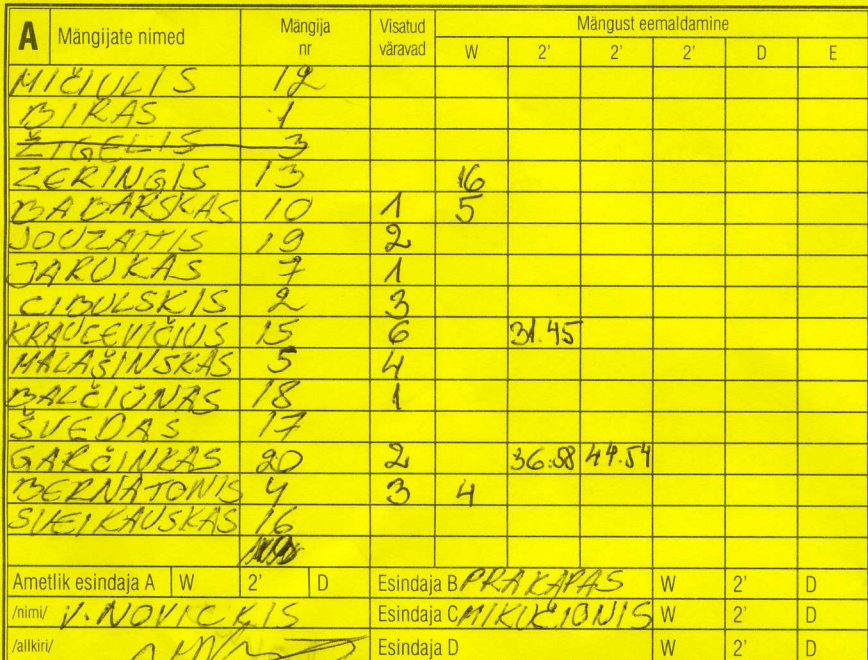 A Mängijate nimed Mängija nr Visatud väravad Mängust eemaldamine
W 2' 2' 2' D E
MIČIULIS 12
BIRAS 1
ŽIGELIS 3
ZERINGIS 13 16
BABARSKAS 10 1 5
JOUZAITIS 19 2
JARUKAS 7 1
CIBULSKIS 2 3
KRAUCEVIČIUS 15 6 31.45
MALAŠINSKAS 5 4
BALČIŪNAS 18 1
ŠVEDAS 17
GARČINKAS 20 2 36:58 44.54
BERNATONIS 4 3 4
SVEIKAUSKAS 16
Ametlik esindaja A W 2' D Esindaja B PRAKAPAS W 2' D
/nimi/ V. NOVICKIS Esindaja C MIKUČIONIS W 2' D
/allkiri/ Esindaja D W 2' D